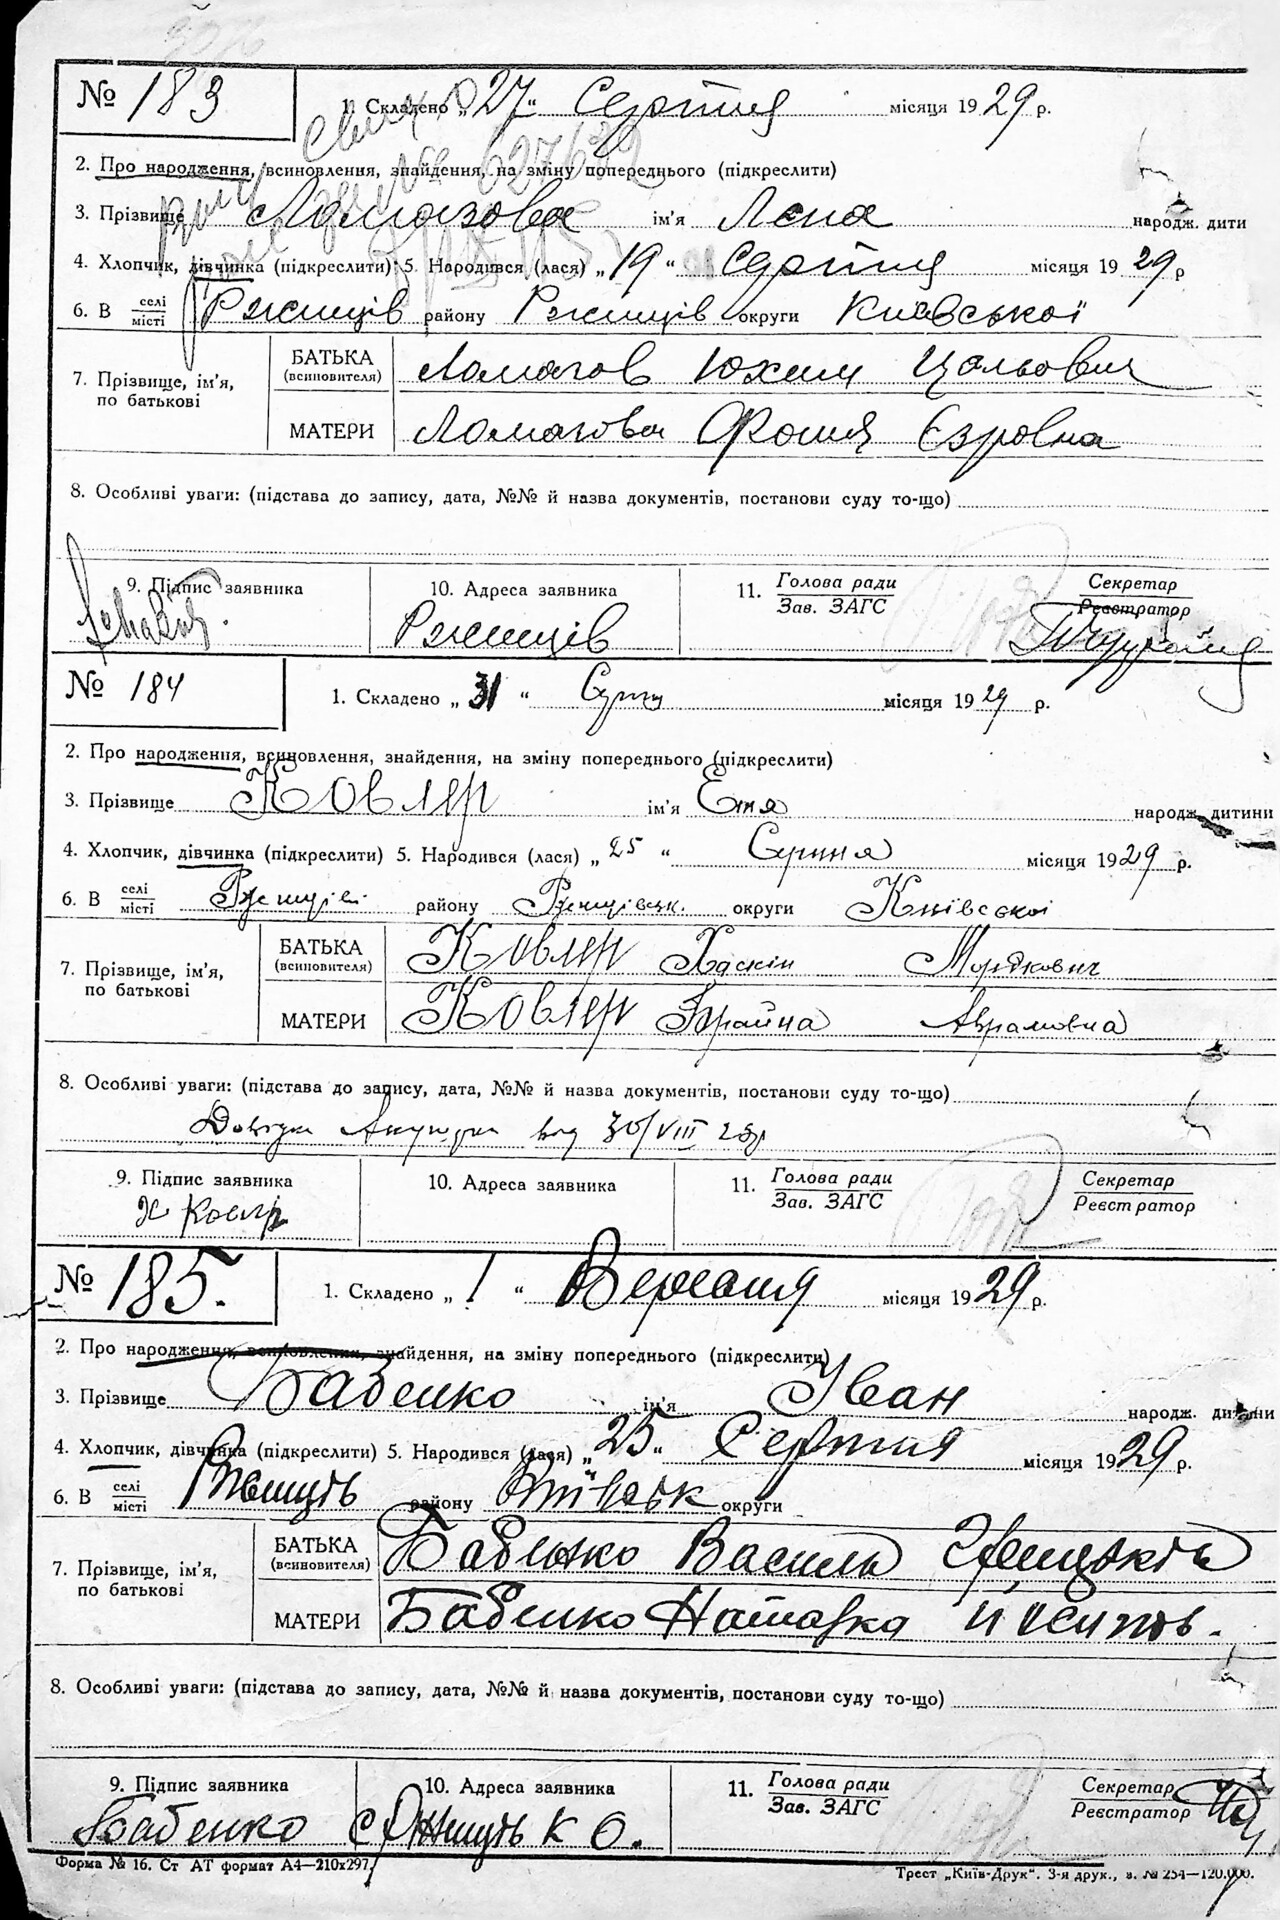 № 183
1. Складено „27“ Серпня місяця 1929 р.
2. Про народження, всиновлення, знайдення, на зміну попереднього (підкреслити)
3. Прізвище Ломазова ім'я Лєна народж. дити
4. Хлопчик, дівчинка (підкреслити) 5. Народився (лася) „19“ Серпня місяця 1929 р
6. В селі/місті Ржищів району Ржищів округи Київської
7. Прізвище, ім'я, по батькові
БАТЬКА (всиновителя) Ломазов Юхим Цальович
МАТЕРИ Ломазова Фаня Єзровна
8. Особливі уваги: (підстава до запису, дата, №№ й назва документів, постанови суду то-що)
9. Підпис заявника
10. Адреса заявника
11. Голова ради / Зав. ЗАГС
Секретар / Реєстратор
Ржищів
№ 184
1. Складено „31“ Серпня місяця 1929 р.
2. Про народження, всиновлення, знайдення, на зміну попереднього (підкреслити)
3. Прізвище Ковлер ім'я Етя народж. дитини
4. Хлопчик, дівчинка (підкреслити) 5. Народився (лася) „25“ Серпня місяця 1929 р.
6. В селі/місті Ржищів району Ржищівськ. округи Київської
7. Прізвище, ім'я, по батькові
БАТЬКА (всиновителя) Ковлер Хаскін Мордкович
МАТЕРИ Ковлер Брайна Аврамовна
8. Особливі уваги: (підстава до запису, дата, №№ й назва документів, постанови суду то-що)
Довідка Акушерки від 30/VIII 29р
9. Підпис заявника
10. Адреса заявника
11. Голова ради / Зав. ЗАГС
Секретар / Реєстратор
№ 185.
1. Складено „1“ Вересня місяця 1929 р.
2. Про народження, всиновлення, знайдення, на зміну попереднього (підкреслити)
3. Прізвище Бабенко ім'я Іван народж. дитини
4. Хлопчик, дівчинка (підкреслити) 5. Народився (лася) „25“ Серпня місяця 1929 р.
6. В селі/місті району округи
7. Прізвище, ім'я, по батькові
БАТЬКА (всиновителя) Бабенко Василь
МАТЕРИ Бабенко Наталка Йосипов.
8. Особливі уваги: (підстава до запису, дата, №№ й назва документів, постанови суду то-що)
9. Підпис заявника
10. Адреса заявника
11. Голова ради / Зав. ЗАГС
Секретар / Реєстратор
Бабенко
Форма № 16. Ст АТ формат А4—210х297.
Трест „Київ-Друк“. 3-я друк., з. № 254—120.000.